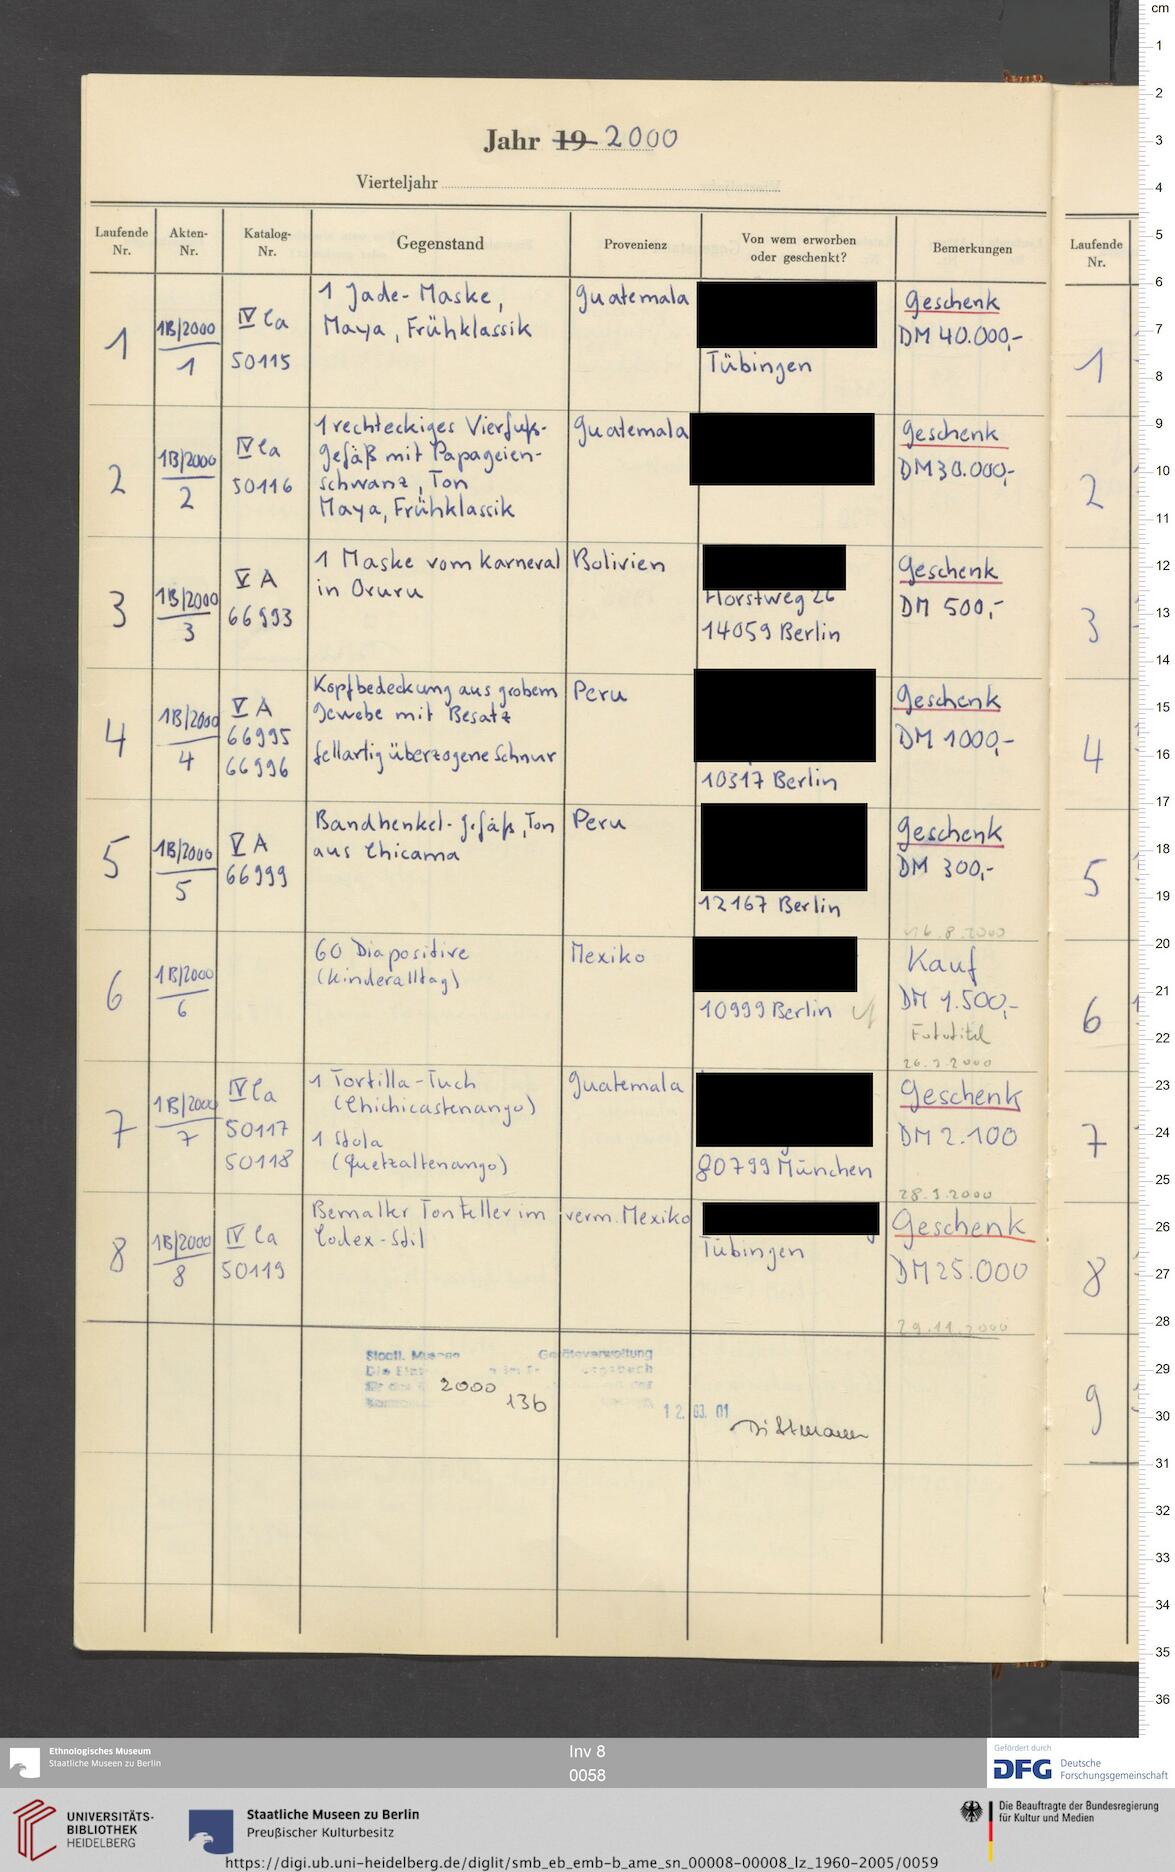 Jahr 19 2000
Vierteljahr
Laufende Nr.
Akten-Nr.
Katalog-Nr.
Gegenstand
Provenienz
Von wem erworben oder geschenkt?
Bemerkungen
Laufende Nr.
1
1B/2000
1
IV Ca
50115
1 Jade-Maske,
Maya, Frühklassik
Guatemala
Tübingen
Geschenk
DM 40.000,-
1
2
1B/2000
2
IV Ca
50116
1 rechteckiges Vierfuß-
gefäß mit Papageien-
schwanz, Ton
Maya, Frühklassik
Guatemala
Geschenk
DM 30.000,-
2
3
1B/2000
3
V A
66993
1 Maske vom Karneval
in Oruru
Bolivien
Horstweg 26
14059 Berlin
Geschenk
DM 500,-
3
4
1B/2000
4
V A
66995
66996
Kopfbedeckung aus grobem
Gewebe mit Besatz
fellartig überzogene Schnur
Peru
10317 Berlin
Geschenk
DM 1000,-
4
5
1B/2000
5
V A
66999
Bandhenkel-Gefäß, Ton
aus Chicama
Peru
12167 Berlin
Geschenk
DM 300,-
5
16.8.2000
6
1B/2000
6
60 Diapositive
(Kinderalltag)
Mexiko
10999 Berlin
Kauf
DM 1.500,-
Fototitel
6
26.9.2000
7
1B/2000
7
IV Ca
50117
50118
1 Tortilla-Tuch
(Chichicastenango)
1 Stola
(Quetzaltenango)
Guatemala
80799 München
Geschenk
DM 2.100
7
28.9.2000
8
1B/2000
8
IV Ca
50119
Bemalter Tonteller im
Codex-Stil
verm. Mexiko
Tübingen
Geschenk
DM 25.000
8
29.11.2000
Staatl. Museen Geräteverwaltung
2000
136
12. 03. 01
Dittmann
9
cm
1
2
3
4
5
6
7
8
9
10
11
12
13
14
15
16
17
18
19
20
21
22
23
24
25
26
27
28
29
30
31
32
33
34
35
36
Ethnologisches Museum
Staatliche Museen zu Berlin
Inv 8
0058
Gefördert durch
DFG Deutsche
Forschungsgemeinschaft
UNIVERSITÄTS-
BIBLIOTHEK
HEIDELBERG
Staatliche Museen zu Berlin
Preußischer Kulturbesitz
Die Beauftragte der Bundesregierung
für Kultur und Medien
https://digi.ub.uni-heidelberg.de/diglit/smb_eb_emb-b_ame_sn_00008-00008_lz_1960-2005/0059